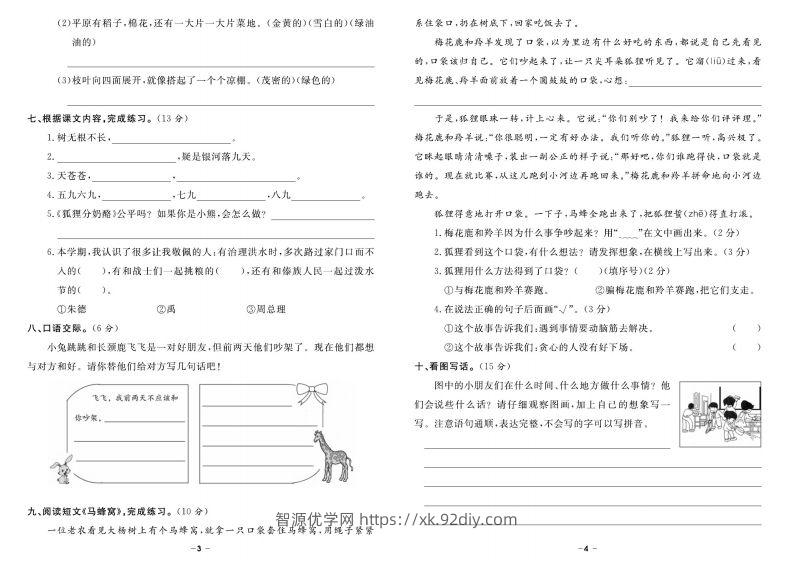 (2)平原有稻子,棉花,还有一大片一大片菜地。(金黄的)(雪白的)(绿油
油的)
(3)枝叶向四面展开,就像搭起了一个个凉棚。(茂密的)(绿色的)
七、根据课文内容,完成练习。(13 分)
1. 树无根不长,____________。
2. ____________,疑是银河落九天。
3. 天苍苍,____________,____________。
4. 五九六九,____________,七九____________,八九____________。
5.《狐狸分奶酪》公平吗?如果你是小熊,会怎么做?____________
6. 本学期,我认识了很多让我敬佩的人:有治理洪水时,多次路过家门口而不
入的(    ),有和战士们一起挑粮的(    ),还有和傣族人民一起过泼水
节的(    )。
①朱德 ②禹 ③周总理
八、口语交际。(6 分)
小兔跳跳和长颈鹿飞飞是一对好朋友,但前两天他们吵架了。现在他们都想
与对方和好。请你替他们给对方写几句话吧!
飞飞,我前两天不应该和
你吵架。
九、阅读短文《马蜂窝》,完成练习。(10 分)
一位老农看见大杨树上有个马蜂窝,就拿一只口袋套住马蜂窝,用绳子紧紧
–3–
系住袋口,扔在树底下,回家吃饭去了。
梅花鹿和羚羊发现了口袋,以为里边有什么好吃的东西,都说是自己先看见
的,口袋该归自己。它们吵起来了,让一只尖耳朵狐狸听见了。它溜(liū)过来,看
见梅花鹿、羚羊面前放着一个圆鼓鼓的口袋,心想:____________
于是,狐狸眼珠一转,计上心来。它说:“你们别吵了!我来给你们评评理。”
梅花鹿和羚羊说:“你很聪明,一定有好办法。我们听你的。”狐狸一听,高兴极了。
它眯起眼睛清清嗓子,装出一副公正的样子说:“那好吧,你们谁跑得快,口袋就是
谁的。现在就比赛,从这儿跑到小河边再跑回来。”梅花鹿和羚羊拼命地向小河边
跑去。
狐狸得意地打开口袋。一下子,马蜂全跑出来了,把狐狸蜇(zhē)得直打滚。
1. 梅花鹿和羚羊因为什么事争吵起来?用“﹏﹏”在文中画出来。(2 分)
2. 狐狸看到这个口袋,有什么想法?请发挥想象,在横线上写出来。(3 分)
3. 狐狸用什么方法得到了口袋?(    )(填序号)(2 分)
①与梅花鹿和羚羊赛跑。 ②骗梅花鹿和羚羊赛跑,把它们支走。
4. 在说法正确的句子后面画“√”。(3 分)
①这个故事告诉我们:遇到事情要动脑筋去解决。 (    )
②这个故事告诉我们:贪心的人没有好下场。 (    )
十、看图写话。(15 分)
图中的小朋友们在什么时间、什么地方做什么事情?他
们会说些什么话?请仔细观察图画,加上自己的想象写一
写。注意语句通顺,表达完整,不会写的字可以写拼音。
–4–
智源优学网 https://xk.92diy.com